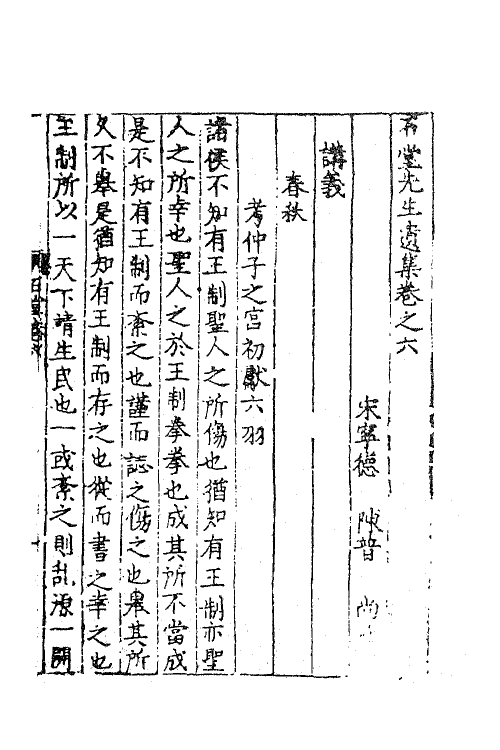 石堂先生遺集卷之六
宋寧德 陳普 尚
講義
春秋
考仲子之宮初獻六羽
諸侯不知有王制聖人之所傷也猶知有王制亦聖
人之所幸也聖人之於王制拳拳也成其所不當成
是不知有王制而紊之也謹而誌之傷之也舉其所
久不舉是猶知有王制而存之也從而書之幸之也
王制所以一天下請生民也一或紊之則乱源一開